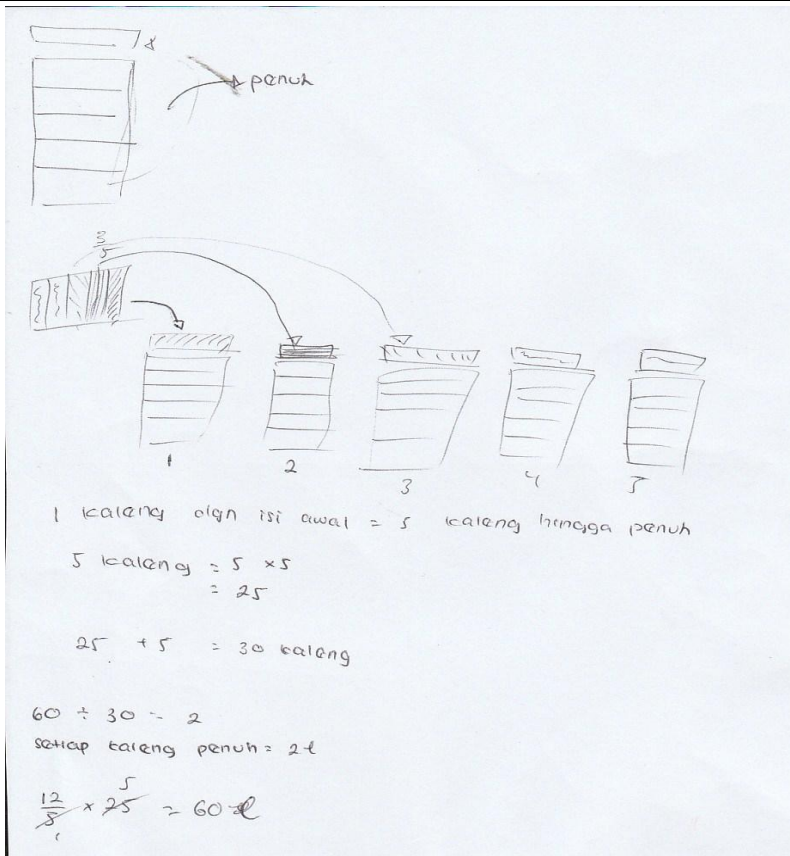 penuh
3/5
1 2 3 4 5
1 kaleng dgn isi awal = 5 kaleng hingga penuh
5 kaleng = 5 × 5
= 25
25 + 5 = 30 kaleng
60 ÷ 30 = 2
setiap kaleng penuh = 2 l
12/5 × 25 = 60 l
5
1